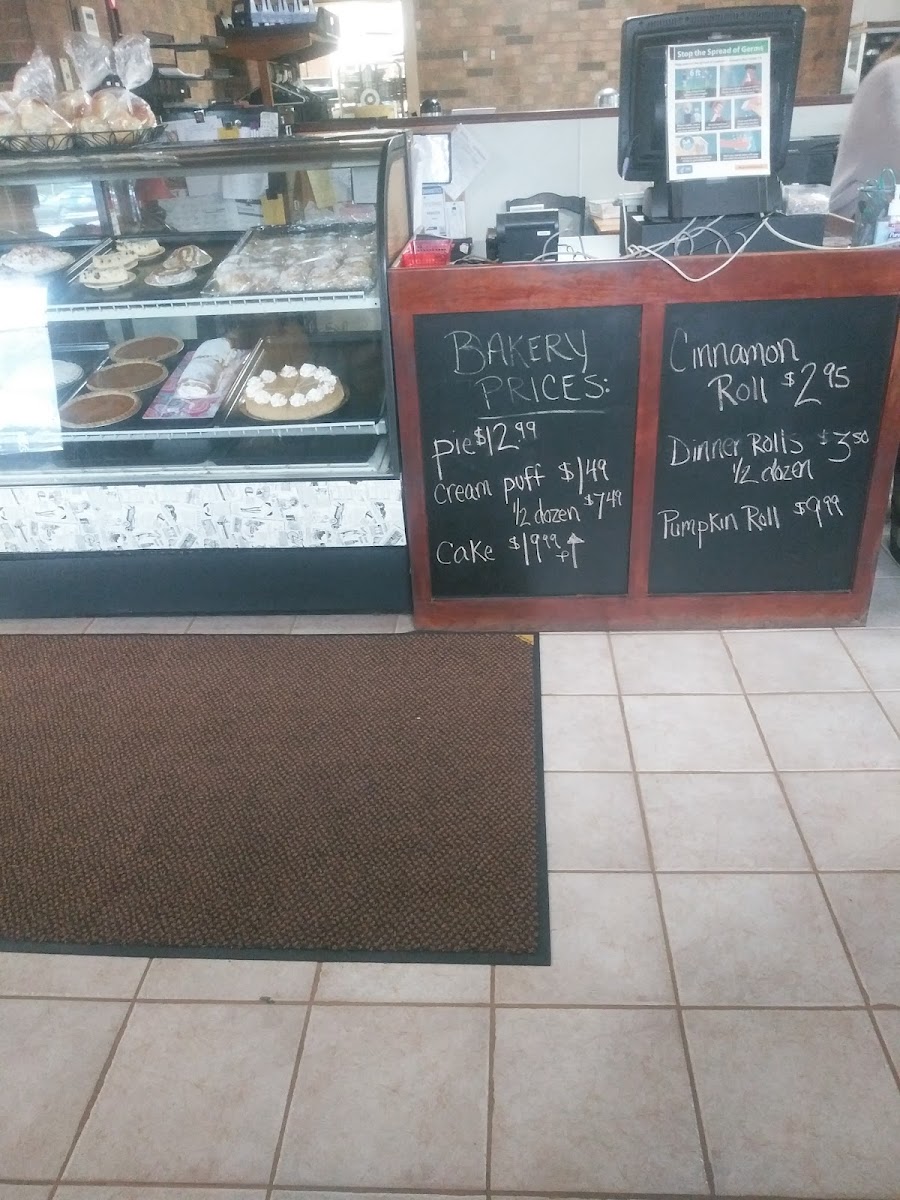 Stop the Spread of Germs
BAKERY
PRICES:
pie $12.99
Cream puff $1.49
1/2 dozen $7.49
Cake $19.99 + ↑
Cinnamon
Roll $2.95
Dinner Rolls $3.50
1/2 dozen
Pumpkin Roll $9.99